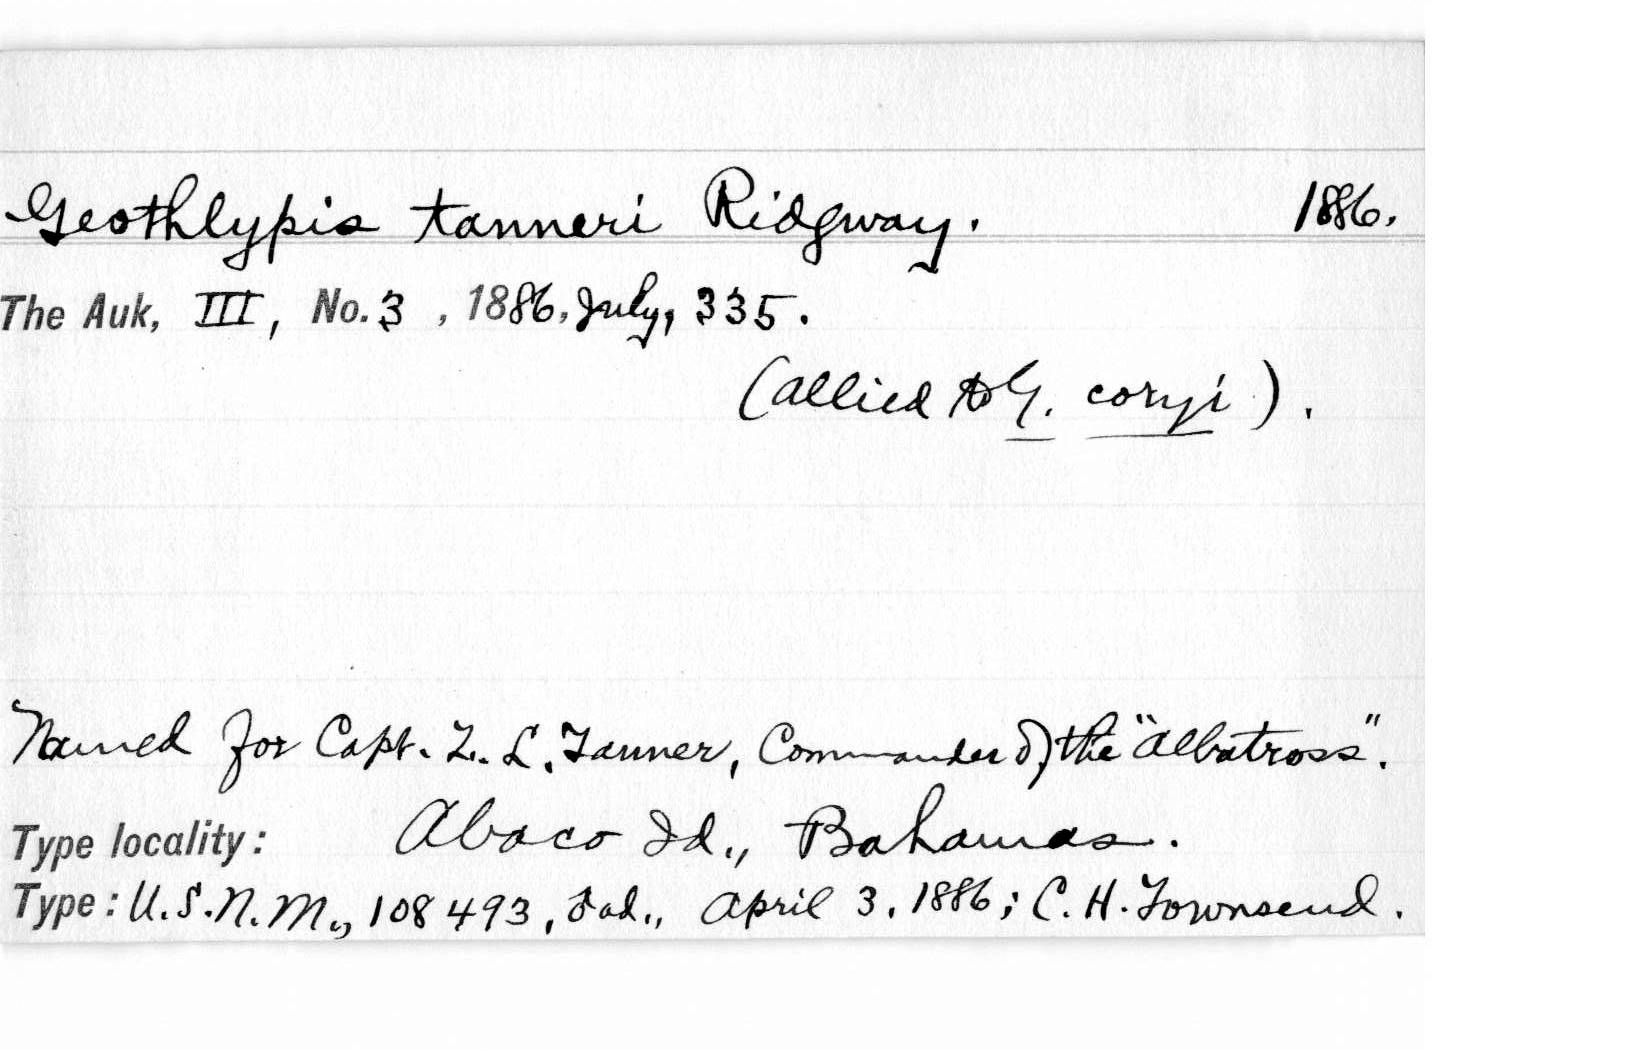 Geothlypis tanneri Ridgway. 1886.
The Auk, III, No. 3, 1886, July, 335.
(allied to G. coryi).
Named for Capt. Z. L. Tanner, Commander of the "Albatross".
Type locality: Abaco Id., Bahamas.
Type: U.S.N.M., 108493, ♂ ad., April 3, 1886; C. H. Townsend.